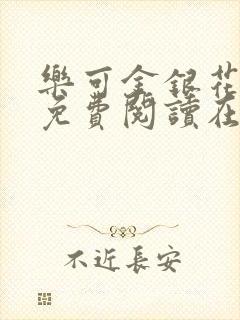 樂可金銀花
免費閱讀在
不近長安